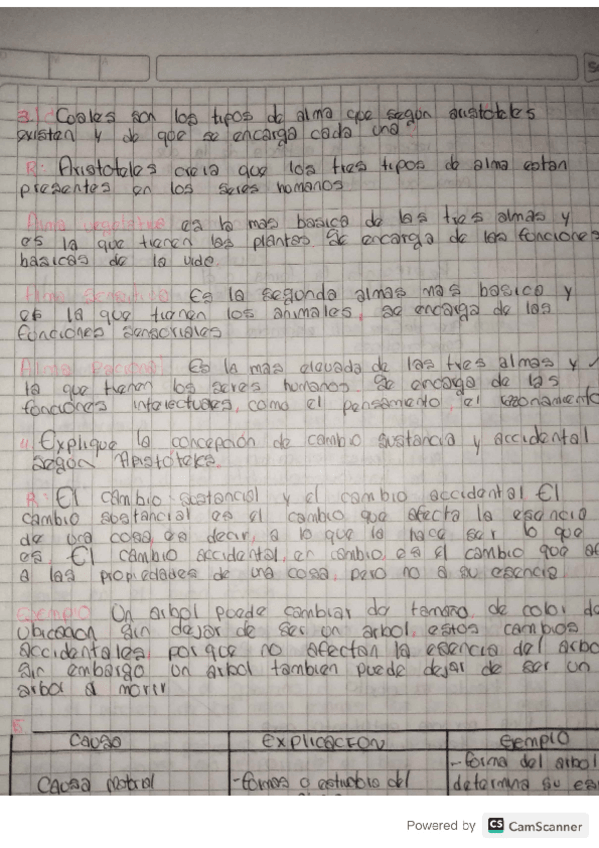 3. Coales son los tipos de alma que según aristoteles
existen y de que se encarga cada una
R: Aristoteles creia que los tres tipos de alma estan
presentes en los seres humanos
Alma vegetativa es la mas basica de las tres almas y
es la que tienen las plantas Se encarga de las funciones
basicas de la vida.
Alma Es la segunda almas mas basica y
es la que tienen los animales, se encarga de las
funciones sensoriales
Alma racional Es la mas elevada de las tres almas y
la que tienen los seres humanos. Se encarga de las
funciones intelectuales, como el pensamiento, el razonamiento
4. Explique la concepción de cambio sustancia y accidental
según Aristóteles.
R: El cambio sustancial y el cambio accidental El
cambio sustancial es el cambio que afecta la esencia
de una cosa, es decir, a lo que la hace ser lo que
es. El cambio accidental, en cambio, es el cambio que
a las propiedades de una cosa, pero no a su esencia
Ejemplo Un arbol puede cambiar de tamaño, de color de
ubicacion sin dejar de ser un arbol, estos cambios
accidentales, porque no afectan la esencia del arbo
sin embargo un arbol tambien puede dejar de ser un
arbol al morir
5.
CAUSA EXPLICACION Ejemplo
Causa -formas o del -forma del arbol
determina su
Powered by CS CamScanner